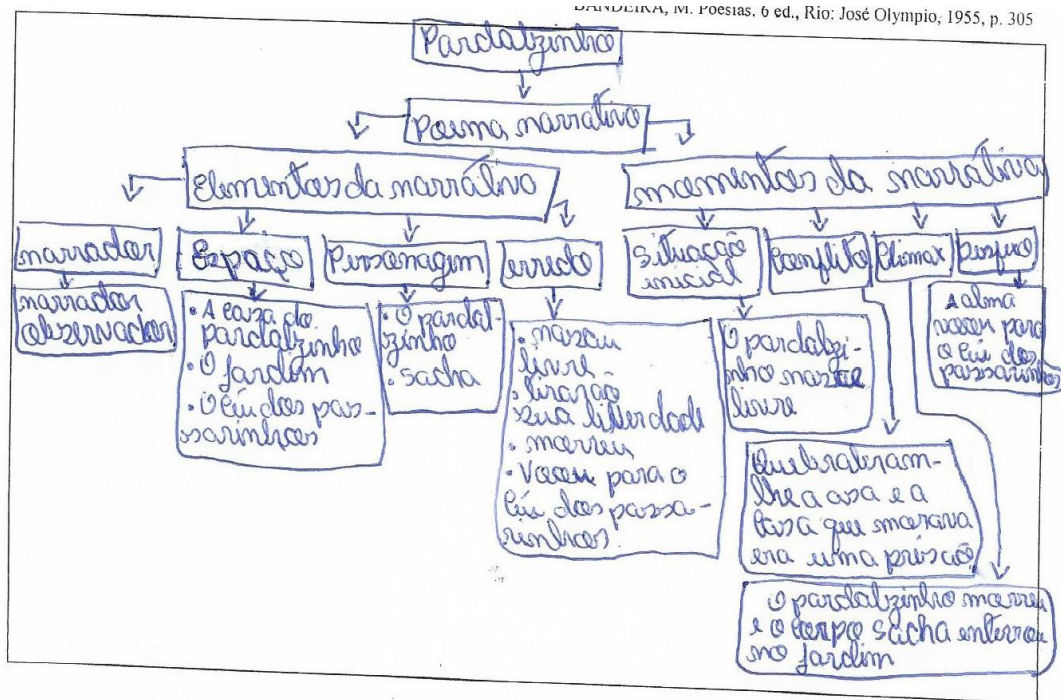 BANDEIRA, M. Poesias. 6 ed., Rio: José Olympio, 1955, p. 305
Pardalzinho
Poema narrativo
Elementos da narrátivo
momentos da narrátiva
narrador
Espaço
Personagem
enredo
situação
inicial
Conflito
Climax
Desfexo
narrador
observador
• A casa do
pardalzinho
• O jardim
• O céu dos pas-
sarinhos
• O pardal-
zinho
• sacha
• nasceu
livre
• tirarão
sua liberdade
• morreu
• Voou para o
céu dos passa-
rinhos
O pardalzi-
nho nasce
livre
Quebraram-
lhe a asa e a
casa que morava
era uma prisão
O pardalzinho morreu
e o corpo sacha enterrou
no jardim
A alma
voou para
o céu dos
passarinhos